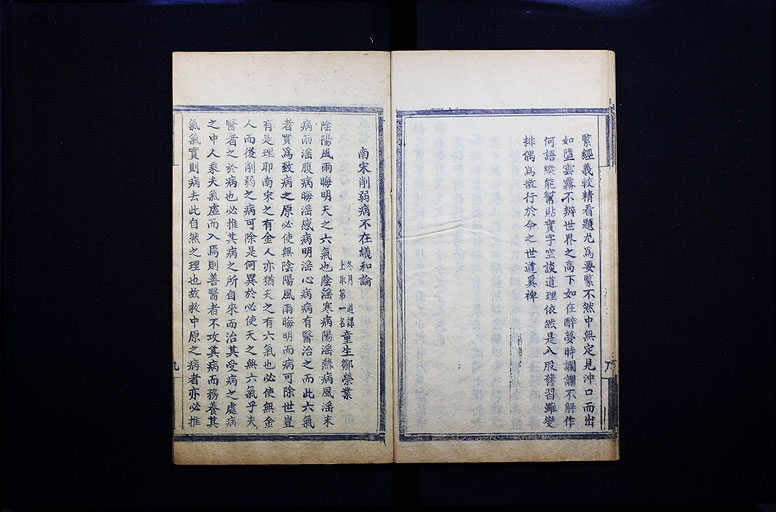 緊經義較精看題尤爲要緊不然中無定見沖口而出
如墮雲霧不辨世界之高下如在醉夢時讕讕不解作
何語縱能幫貼實字空談道理依然是八股舊習雖變
排偶爲散行於今之世道奚裨
南宋削弱病不在議和論
冬月道課
上取第一名
童生鄒榮業
陰陽風雨晦明天之六氣也陰淫寒病陽淫熱病風淫末
病雨淫腹病晦淫惑病明淫心病病有醫治之而此六氣
者實爲致病之原必使無陰陽風雨晦明而病可除世豈
有是理耶南宋之有金人亦猶天之有六氣也必使無金
人而後削弱之病可除是何異於必使天之無六氣乎夫
醫者之於病也必推其病之所自來而治其受病之處病
之中人乘夫氣虛而入焉則善醫者不攻其病而務養其
氣氣實則病去此自然之理也故救中原之病者亦必推
九